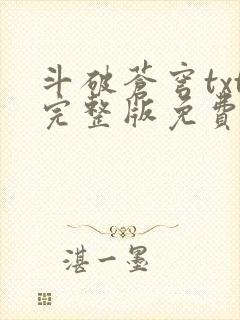 斗破苍穹txt
完整版免費
湛一墨